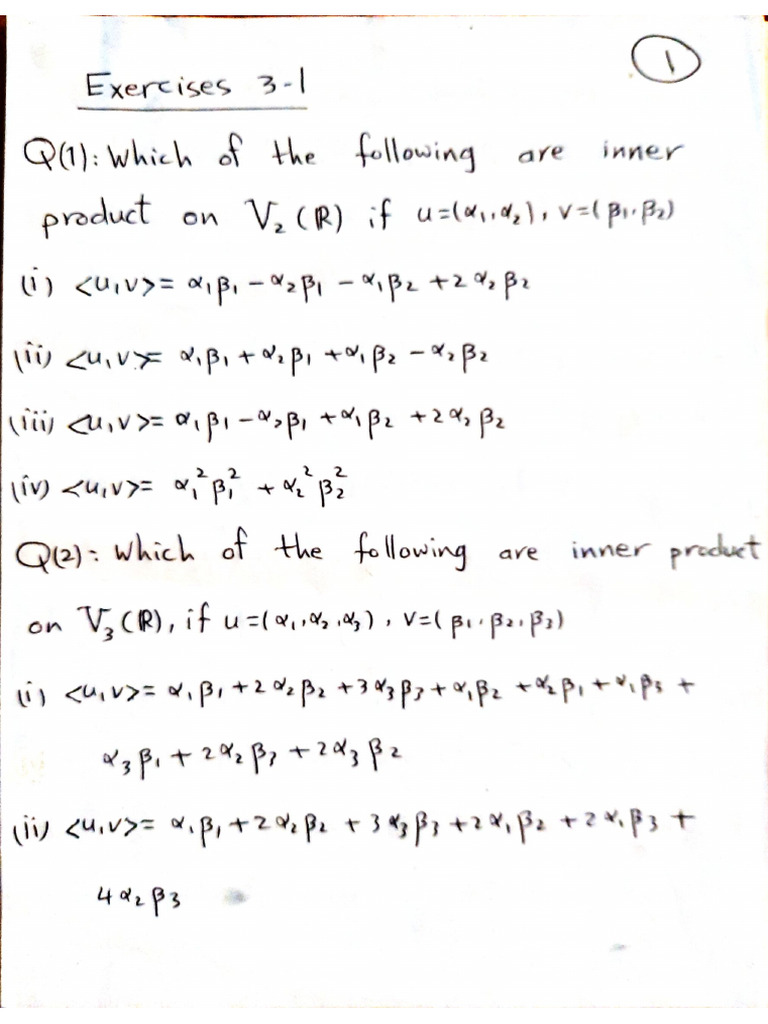 1
Exercises 3-1
Q(1): Which of the following are inner
product on V₂(ℝ) if u=(α₁,α₂), v=(β₁,β₂)
(i) <u,v>= α₁β₁ - α₂β₁ - α₁β₂ + 2α₂β₂
(ii) <u,v>= α₁β₁ + α₂β₁ + α₁β₂ - α₂β₂
(iii) <u,v>= α₁β₁ - α₂β₁ + α₁β₂ + 2α₂β₂
(iv) <u,v>= α₁²β₁² + α₂²β₂²
Q(2): Which of the following are inner product
on V₃(ℝ), if u=(α₁,α₂,α₃), v=(β₁,β₂,β₃)
(i) <u,v>= α₁β₁ + 2α₂β₂ + 3α₃β₃ + α₁β₂ + α₂β₁ + α₁β₃ +
α₃β₁ + 2α₂β₃ + 2α₃β₂
(ii) <u,v>= α₁β₁ + 2α₂β₂ + 3α₃β₃ + 2α₁β₂ + 2α₁β₃ +
4α₂β₃